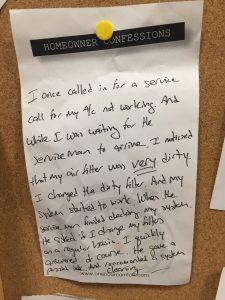 HOMEOWNER CONFESSIONS
I once called in for a service
call for my A/c not working. And
while I was waiting for the
serviceman to arrive, I noticed
that my air filter was very dirty.
I changed the dirty filter. And my
system started to work. When the
service man finished checking my system.
He asked if I change my filters
on a regular basis. I quickly
answered of course. He gave a
look. And recommended a system
cleaning.
www.onehourcomfort.com